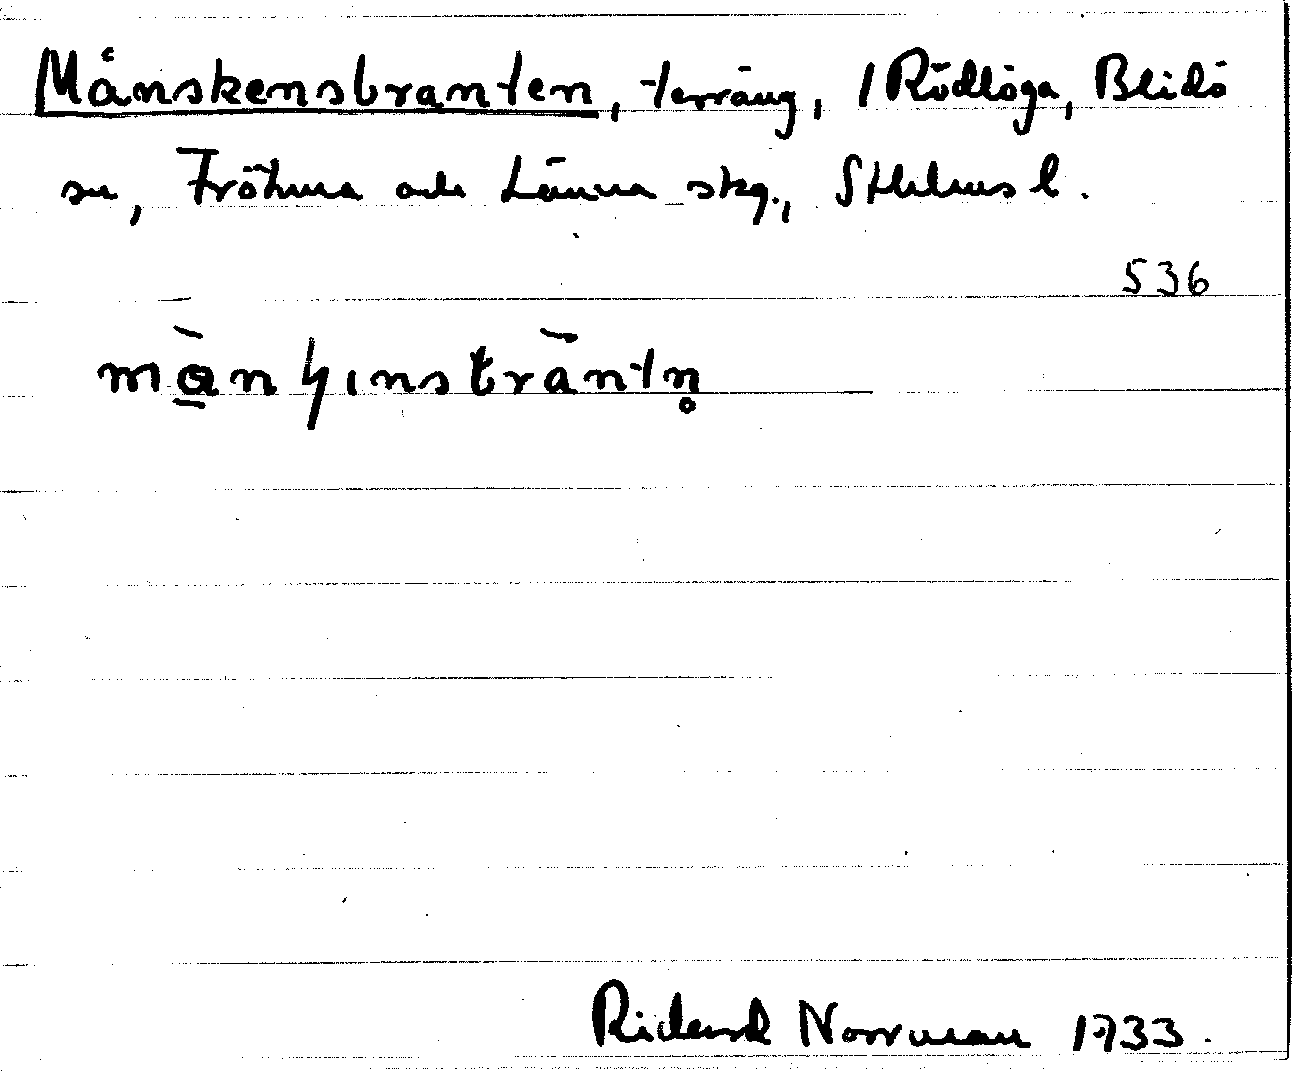 Månskensbranten, terräng, / Rödlöga, Blidö
sn, Frötuna och Länna skg., Sthlms l.
536
Rickard Norrman 1933.